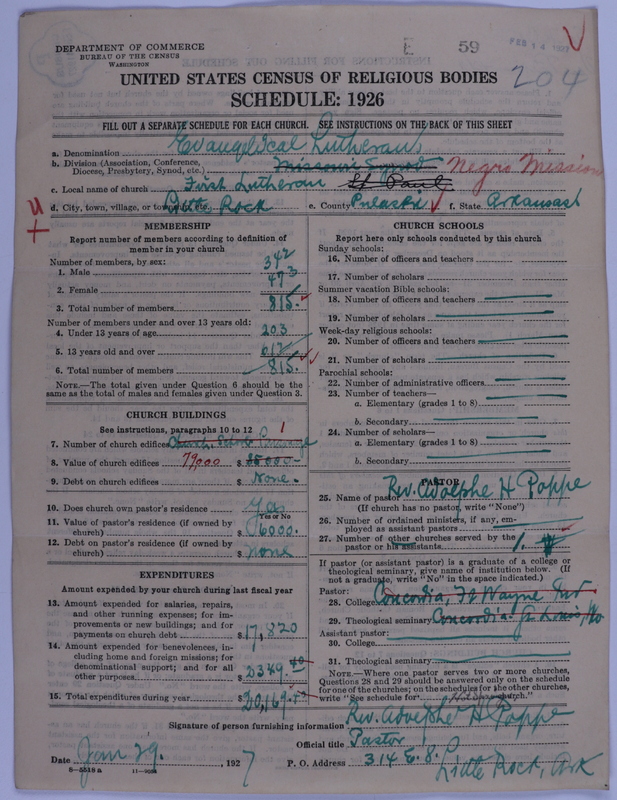 DEPARTMENT OF COMMERCE
BUREAU OF THE CENSUS
WASHINGTON
E 59
FEB 14 1927
204
UNITED STATES CENSUS OF RELIGIOUS BODIES
SCHEDULE: 1926
FILL OUT A SEPARATE SCHEDULE FOR EACH CHURCH. SEE INSTRUCTIONS ON THE BACK OF THIS SHEET
a. Denomination Evangelical Lutheran
b. Division (Association, Conference, Diocese, Presbytery, Synod, etc.) Missouri Synod Negro Mission
c. Local name of church First Lutheran St Paul
d. City, town, village, or township, etc. Little Rock e. County Pulaski f. State Arkansas
MEMBERSHIP
Report number of members according to definition of
member in your church
Number of members, by sex:
1. Male 342
2. Female 473
3. Total number of members 815
Number of members under and over 13 years old:
4. Under 13 years of age 203
5. 13 years old and over 612
6. Total number of members 815
NOTE.—The total given under Question 6 should be the
same as the total of males and females given under Question 3.
CHURCH BUILDINGS
See instructions, paragraphs 10 to 12
7. Number of church edifices Church School Parsonage 1
8. Value of church edifices 79000 $ 85000
9. Debt on church edifices $ None
10. Does church own pastor's residence Yes
Yes or No
11. Value of pastor's residence (if owned by
church) $ 6000.
12. Debt on pastor's residence (if owned by
church) $ none
EXPENDITURES
Amount expended by your church during last fiscal year
13. Amount expended for salaries, repairs,
and other running expenses; for im-
provements or new buildings; and for
payments on church debt $ 17,820
14. Amount expended for benevolences, in-
cluding home and foreign missions; for
denominational support; and for all
other purposes $ 2349.40
15. Total expenditures during year $ 20,169.40
CHURCH SCHOOLS
Report here only schools conducted by this church
Sunday schools:
16. Number of officers and teachers
17. Number of scholars
Summer vacation Bible schools:
18. Number of officers and teachers
19. Number of scholars
Week-day religious schools:
20. Number of officers and teachers
21. Number of scholars
Parochial schools:
22. Number of administrative officers
23. Number of teachers—
a. Elementary (grades 1 to 8)
b. Secondary
24. Number of scholars—
a. Elementary (grades 1 to 8)
b. Secondary
PASTOR
25. Name of pastor Rev. Adolphe H Poppe
(If church has no pastor, write "None")
26. Number of ordained ministers, if any, em-
ployed as assistant pastors
27. Number of other churches served by the
pastor or his assistants 1.
If pastor (or assistant pastor) is a graduate of a college or
theological seminary, give name of institution below. (If
not a graduate, write "No" in the space indicated.)
Pastor:
28. College Concordia, Ft Wayne Ind
29. Theological seminary Concordia St Louis, Mo
Assistant pastor:
30. College
31. Theological seminary
NOTE.—Where one pastor serves two or more churches,
Questions 28 and 29 should be answered only on the schedule
for one of the churches; on the schedules for the other churches,
write "See schedule for church."
Signature of person furnishing information Rev. Adolphe H Poppe
Official title Pastor
Date Jan 29. 1927
P. O. Address 314 E. 8. Little Rock, Ark
8—5518 a